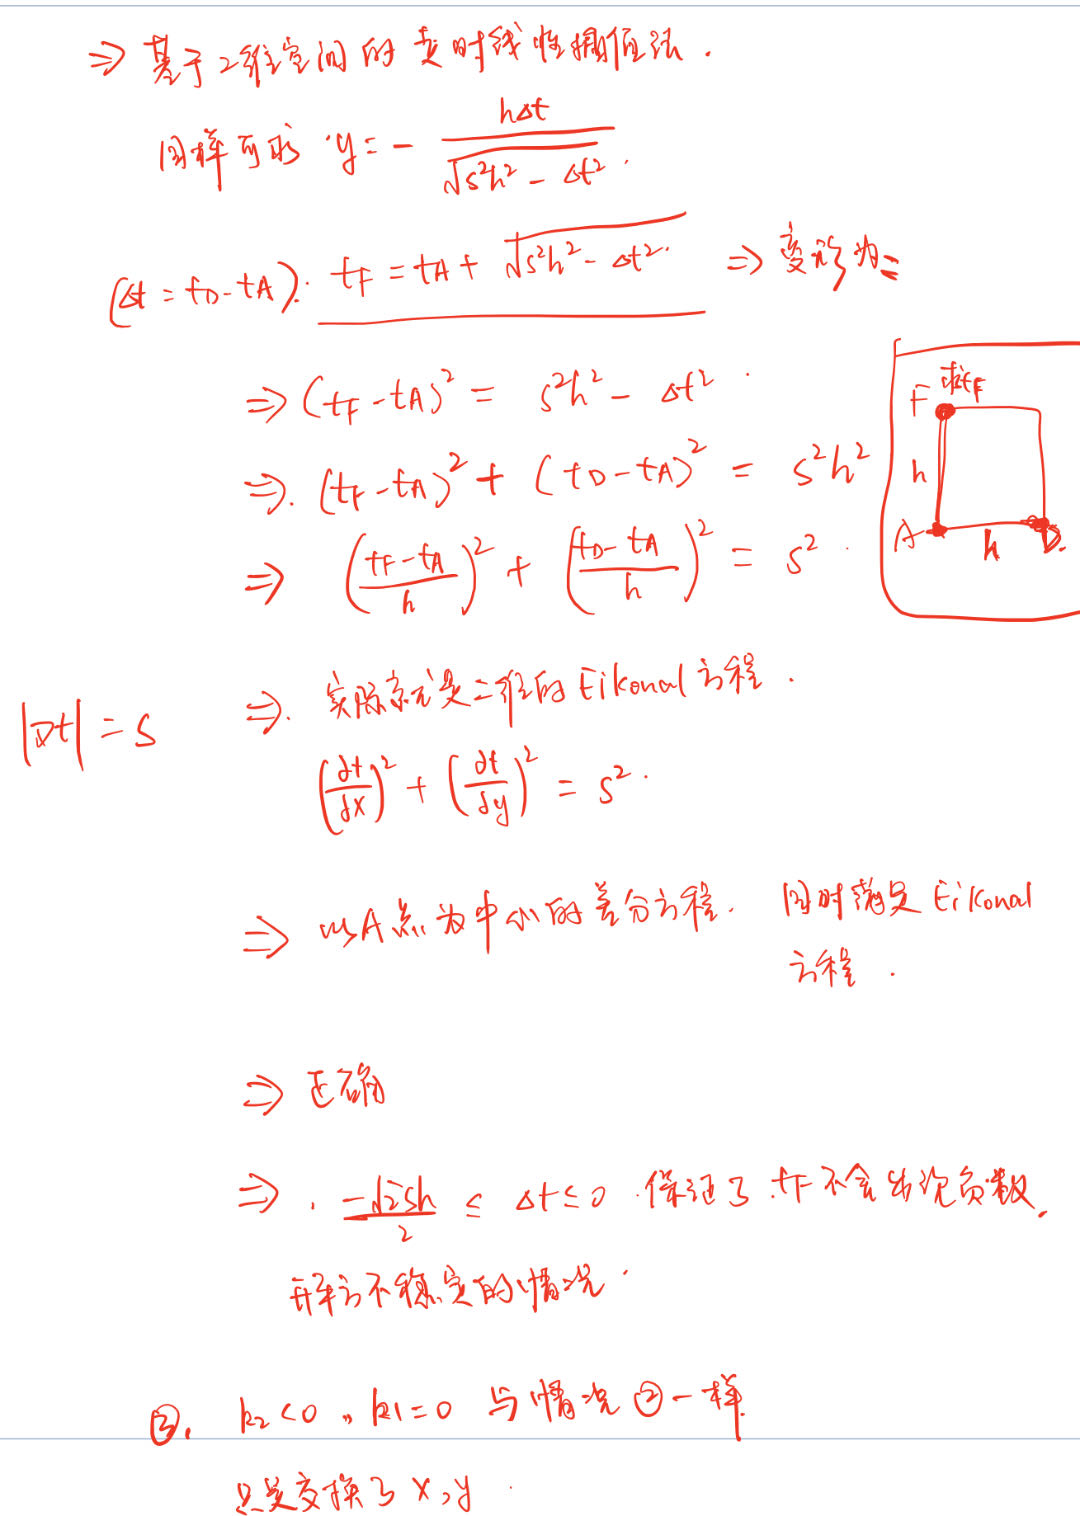 ⇒ 基于2维空间的走时线性插值法.
同样可求 y = - hΔt / √(s²h² - Δt²).
(Δt = t_D - t_A). t_F = t_A + √(s²h² - Δt²) ⇒ 变形为=
⇒ (t_F - t_A)² = s²h² - Δt²
⇒. (t_F - t_A)² + (t_D - t_A)² = s²h²
⇒ ((t_F - t_A)/h)² + ((t_D - t_A)/h)² = s²
F 求t_F
h
A h D.
⇒. 实际就是二维的 Eikonal 方程.
|∇t| = s
(∂t/∂x)² + (∂t/∂y)² = s².
⇒ 以A点为中心的差分方程. 同时满足 Eikonal
方程.
⇒ 正确
⇒. -√2sh/2 ≤ Δt ≤ 0 保证了 t_F 不会出现负数,
开平方不稳定的情况.
③. k₂<0, k1=0 与情况②一样
只是交换了 x, y